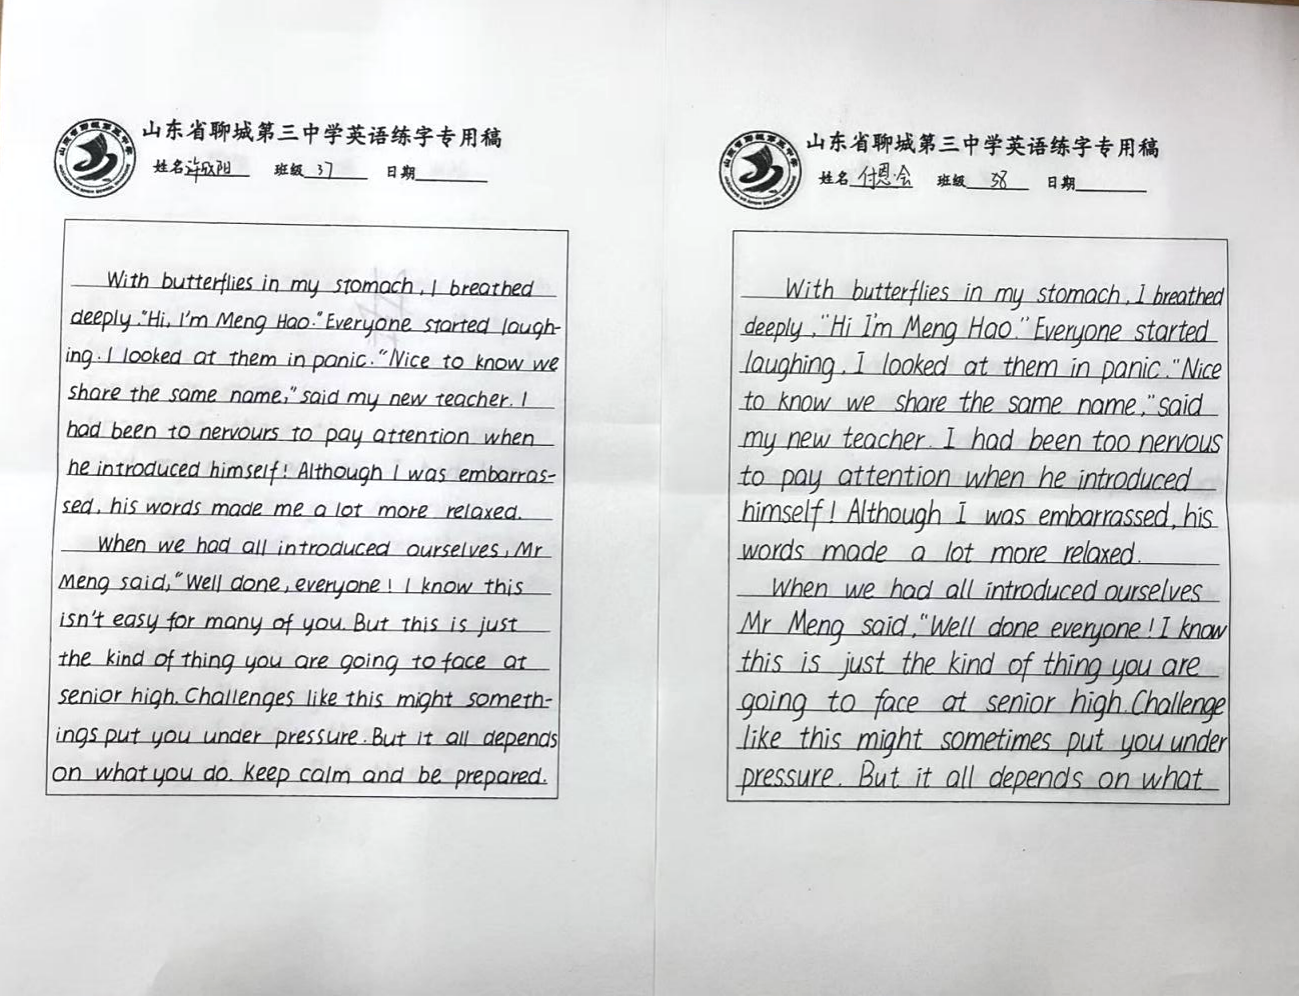 山东省聊城第三中学英语练字专用稿
姓名 许欣阳 班级 37 日期
With butterflies in my stomach, I breathed
deeply. "Hi, I'm Meng Hao." Everyone started laugh-
ing. I looked at them in panic. "Nice to know we
share the same name," said my new teacher. I
had been to nervours to pay attention when
he introduced himself! Although I was embarras-
sed, his words made me a lot more relaxed.
When we had all introduced ourselves, Mr
Meng said, "Well done, everyone! I know this
isn't easy for many of you. But this is just
the kind of thing you are going to face at
senior high. Challenges like this might someth-
ings put you under pressure. But it all depends
on what you do. Keep calm and be prepared.
山东省聊城第三中学英语练字专用稿
姓名 付恩会 班级 38 日期
With butterflies in my stomach, I breathed
deeply, "Hi I'm Meng Hao." Everyone started
laughing. I looked at them in panic. "Nice
to know we share the same name," said
my new teacher. I had been too nervous
to pay attention when he introduced
himself! Although I was embarrassed, his
words made a lot more relaxed.
When we had all introduced ourselves
Mr Meng said, "Well done everyone! I know
this is just the kind of thing you are
going to face at senior high. Challenge
like this might sometimes put you under
pressure. But it all depends on what